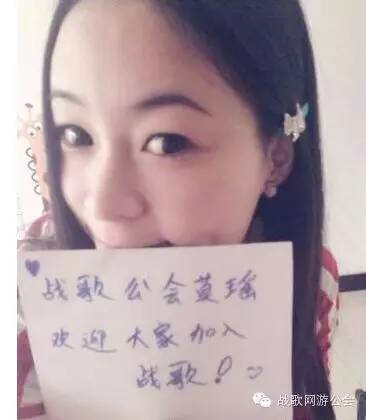 战歌公会蔓瑶
欢迎大家加入
战歌!
战歌网游公会